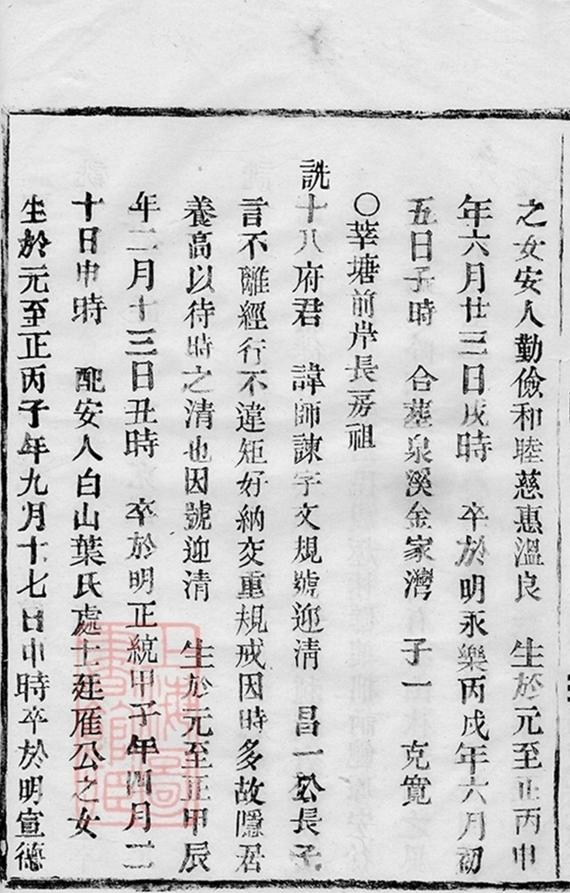 之女安人勤儉和睦慈惠溫良　生於元至正丙申
年六月廿三日戌時　卒於明永樂丙戌年六月初
五日子時　合墓泉溪金家灣　子一　克寬
〇莘塘前岸長房祖
詵十八府君　諱師諫字文規號迎清　昌一公長子
言不離經行不違矩好納交重規戒因時多故隱居
養高以待時之清也因號迎清　生於元至正甲辰
年二月十三日丑時　卒於明正統甲子年四月二
十日申時　配安人白山葉氏處士廷雁公之女
生於元至正丙子年九月十七日申時卒於明宣德
上海圖書館藏